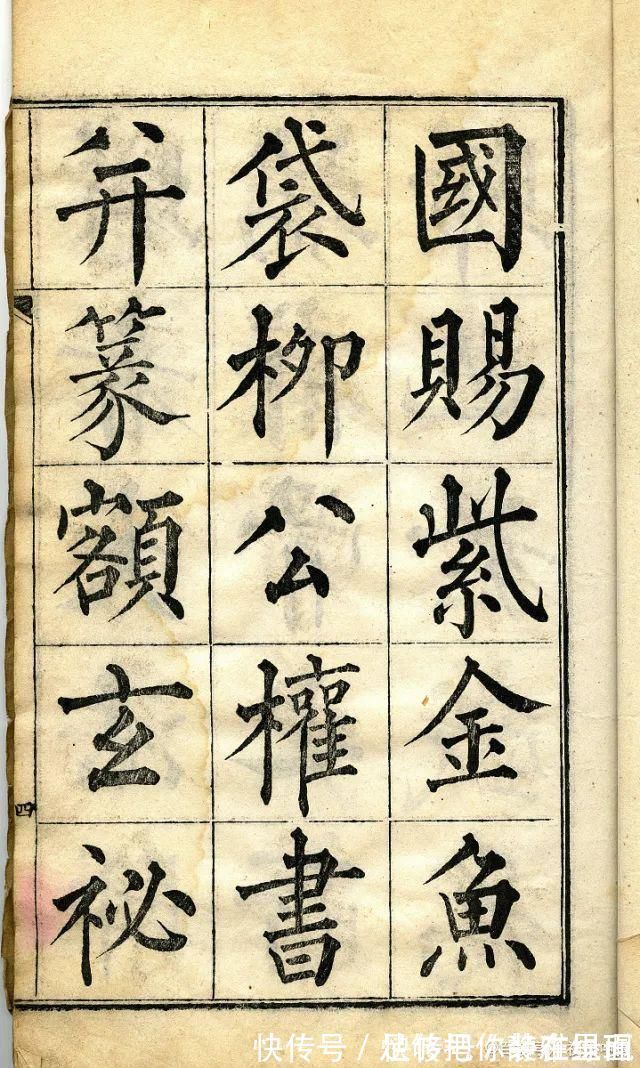 國賜紫金魚
袋柳公權書
并篆額玄祕
四
快传号 /